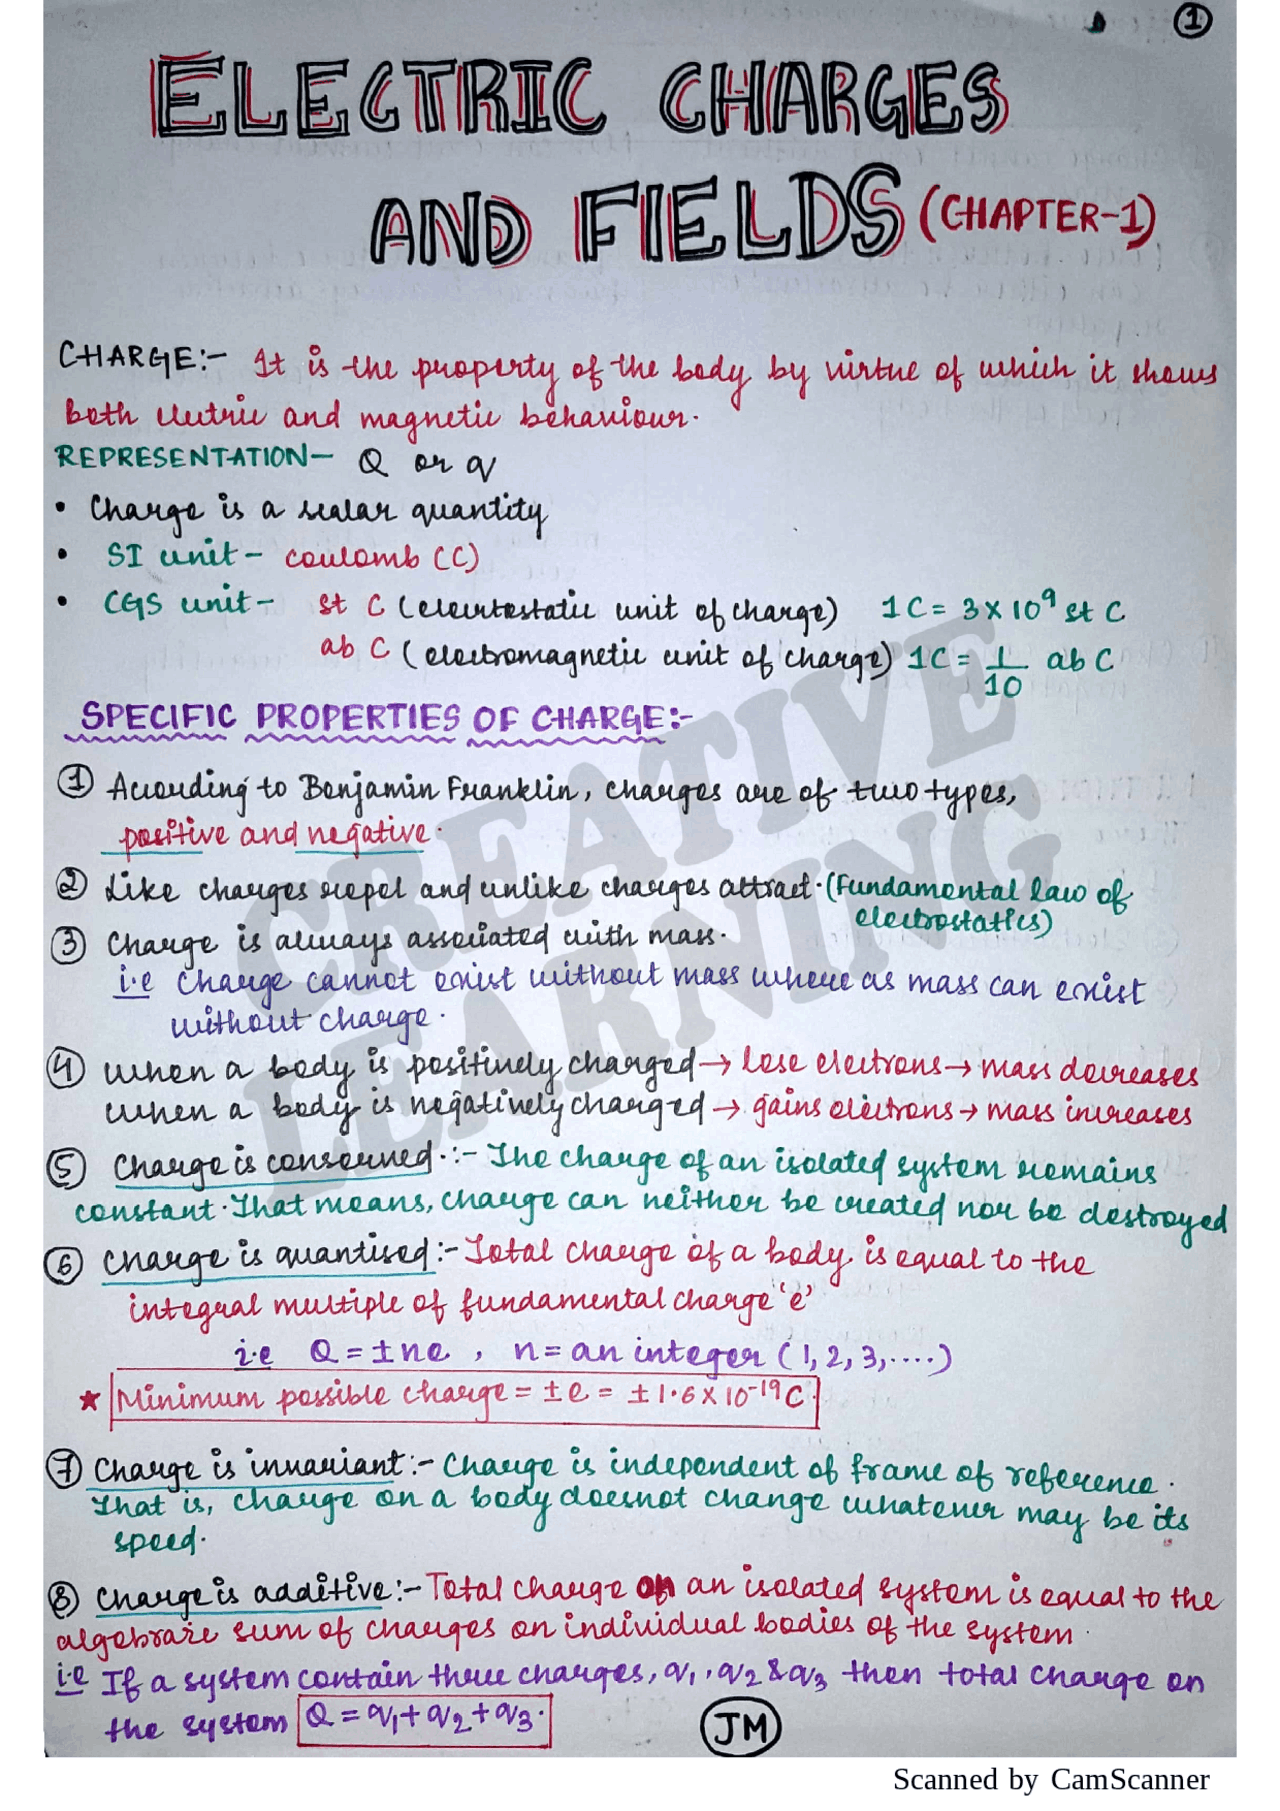 1
ELECTRIC CHARGES
AND FIELDS (CHAPTER-1)
CHARGE:- It is the property of the body by virtue of which it shows
both electric and magnetic behaviour.
REPRESENTATION- Q or q
• Charge is a scalar quantity
• SI unit - coulomb (C)
• CGS unit - st C (electrostatic unit of charge) 1C = 3 x 10⁹ st C
ab C (electromagnetic unit of charge) 1C = 1/10 ab C
SPECIFIC PROPERTIES OF CHARGE:-
① According to Benjamin Franklin, charges are of two types,
positive and negative.
② Like charges repel and unlike charges attract. (Fundamental law of
electrostatics)
③ Charge is always associated with mass.
i.e Charge cannot exist without mass where as mass can exist
without charge.
④ When a body is positively charged → lose electrons → mass decreases
When a body is negatively charged → gains electrons → mass increases
⑤ Charge is conserved.:- The charge of an isolated system remains
constant. That means, charge can neither be created nor be destroyed
⑥ Charge is quantised:- Total charge of a body is equal to the
integral multiple of fundamental charge 'e'
i.e Q = ±ne , n = an integer (1, 2, 3, ....)
★ Minimum possible charge = ±e = ±1.6 x 10⁻¹⁹ C
⑦ Charge is invariant:- Charge is independent of frame of reference.
That is, charge on a body doesnot change whatever may be its
speed.
⑧ Charge is additive:- Total charge on an isolated system is equal to the
algebraic sum of charges on individual bodies of the system.
i.e If a system contain three charges, q₁, q₂ & q₃ then total charge on
the system Q = q₁ + q₂ + q₃.
JM
CREATIVE
LEARNING
Scanned by CamScanner